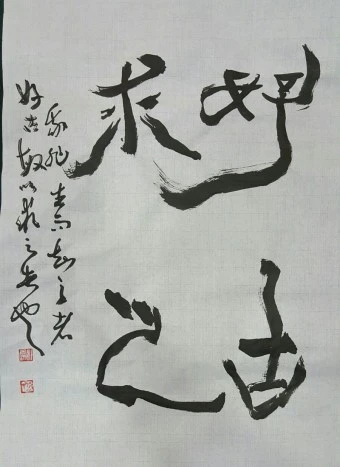 好古
求之
我非生而知之者
好古敏以求之者也